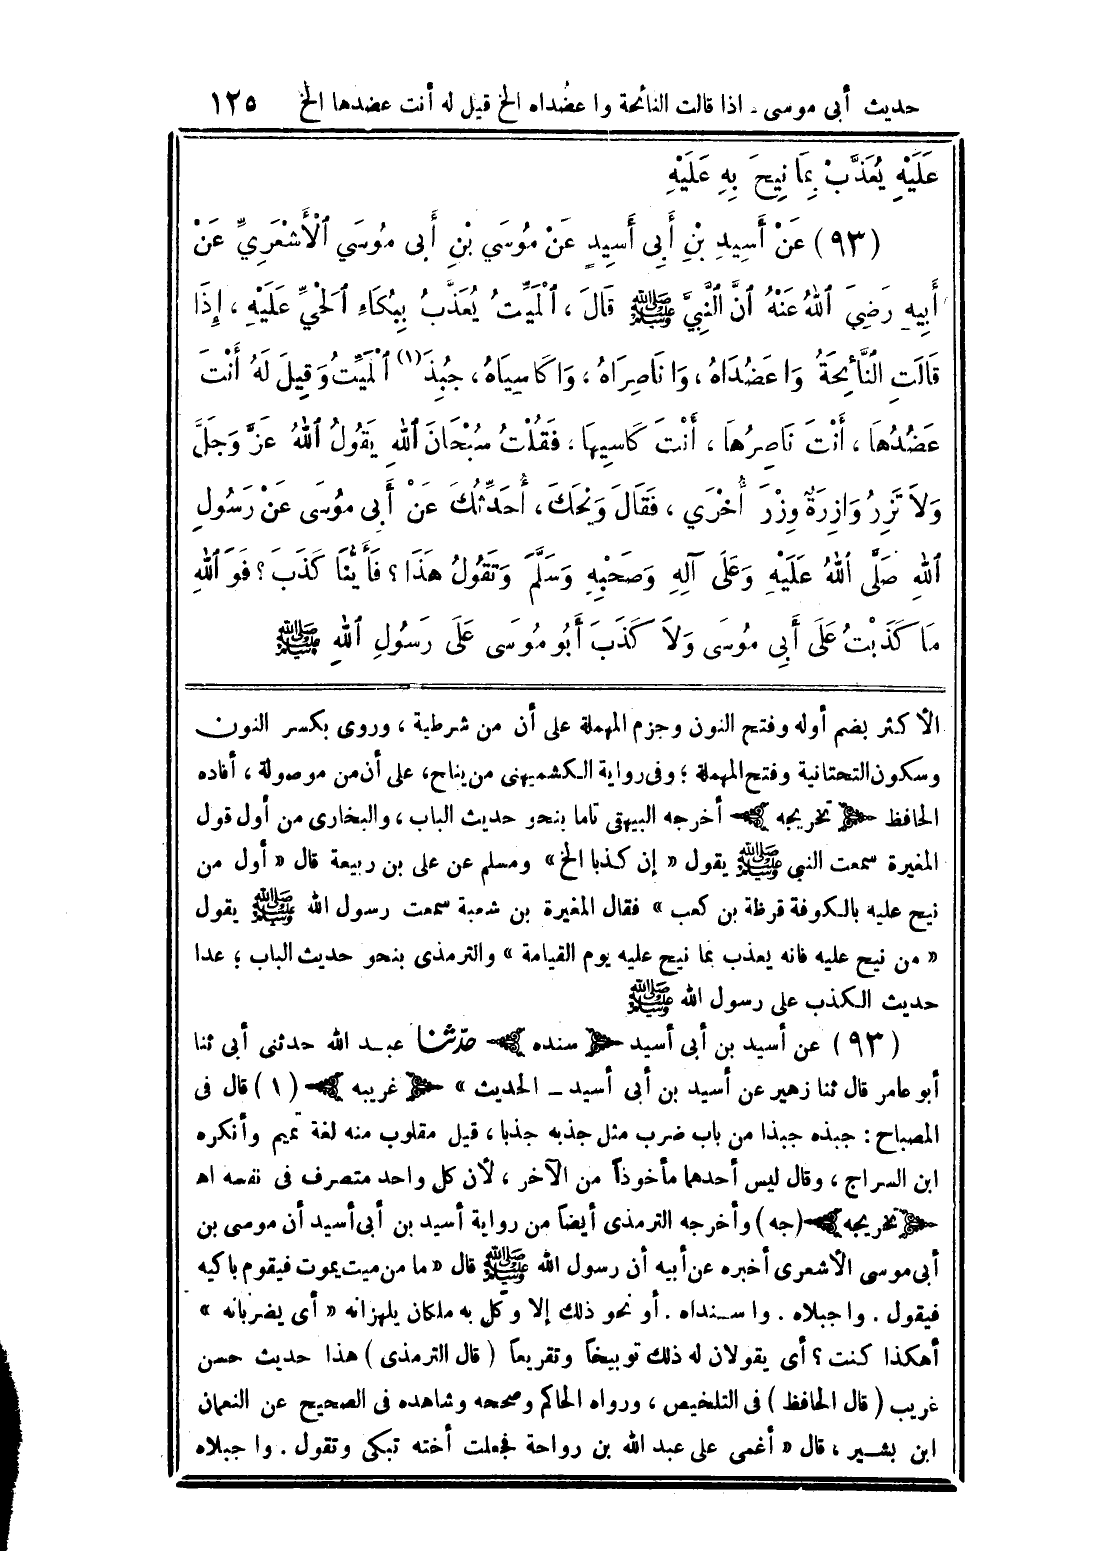 حديث أبى موسى - اذا قالت النائحة وا عضُداه الخ قيل له أنت عضدها الخ ١٢٥
عَلَيْهِ يُعَذَّبْ بِمَا نِيحَ بِهِ عَلَيْهِ
(٩٣) عَنْ أَسِيدِ بْنِ أَبِى أَسِيدٍ عَنْ مُوسَى بْنِ أَبِى مُوسَى ٱلْأَشْعَرِىِّ عَنْ
أَبِيهِ رَضِيَ ٱللهُ عَنْهُ أَنَّ ٱلنَّبِىَّ ﷺ قَالَ ، ٱلْمَيِّتُ يُعَذَّبُ بِبُكَاءِ ٱلْحَيِّ عَلَيْهِ ، إِذَا
قَالَتِ ٱلنَّائِحَةُ وَا عَضُدَاهُ ، وَا نَاصِرَاهُ ، وَا كَاسِيَاهُ ، جُبِذَ (١) ٱلْمَيِّتُ وَقِيلَ لَهُ أَنْتَ
عَضُدُهَا ، أَنْتَ نَاصِرُهَا ، أَنْتَ كَاسِيهَا . فَقُلْتُ سُبْحَانَ ٱللهِ يَقُولُ ٱللهُ عَزَّ وَجَلَّ
وَلاَ تَزِرُ وَازِرَةٌ وِزْرَ أُخْرَى ، فَقَالَ وَيْحَكَ ، أُحَدِّثُكَ عَنْ أَبِى مُوسَى عَنْ رَسُولِ
ٱللهِ صَلَّى ٱللهُ عَلَيْهِ وَعَلَى آلِهِ وَصَحْبِهِ وَسَلَّمَ وَتَقُولُ هَذَا ؟ فَأَيُّنَا كَذَبَ ؟ فَوَٱللهِ
مَا كَذَبْتُ عَلَى أَبِى مُوسَى وَلاَ كَذَبَ أَبُو مُوسَى عَلَى رَسُولِ ٱللهِ ﷺ
الأكثر بضم أوله وفتح النون وجزم المهملة على أن من شرطية ، وروى بكسر النون
وسكون التحتانية وفتح المهملة ؛ وفى رواية الكشميهنى من يناح، على أن من موصولة ، أفاده
الحافظ ﴿ تخريجه ﴾ أخرجه البيهقى تاما بنحو حديث الباب ، والبخارى من أول قول
المغيرة سمعت النبي ﷺ يقول « إن كذبا الخ» ومسلم عن على بن ربيعة قال « أول من
نيح عليه بالكوفة قرظة بن كعب » فقال المغيرة بن شعبة سمعت رسول الله ﷺ يقول
« من نيح عليه فانه يعذب بما نيح عليه يوم القيامة » والترمذى بنحو حديث الباب ؛ عدا
حديث الكذب على رسول الله ﷺ
(٩٣) عن أسيد بن أبى أسيد ﴿ سنده ﴾ حدّثنا عبد الله حدثنى أبى ثنا
أبو عامر قال ثنا زهير عن أسيد بن أبى أسيد ــ الحديث » ﴿ غريبه ﴾ (١) قال فى
المصباح : جبذه جبذا من باب ضرب مثل جذبه جذبا ، قيل مقلوب منه لغة تميم وأنكره
ابن السراج ، وقال ليس أحدهما مأخوذاً من الآخر ، لأن كل واحد متصرف فى نفسه اه
﴿ تخريجه ﴾ (جه) وأخرجه الترمذى أيضاً من رواية أسيد بن أبى أسيد أن موسى بن
أبى موسى الأشعرى أخبره عن أبيه أن رسول الله ﷺ قال « ما من ميت يموت فيقوم باكيه
فيقول . وا جبلاه . وا سنداه . أو نحو ذلك إلا وكل به ملكان يلهزانه « أى يضربانه »
أهكذا كنت ؟ أى يقولان له ذلك توبيخاً وتقريعاً (قال الترمذى) هذا حديث حسن
غريب (قال الحافظ) فى التلخيص ، ورواه الحاكم وصححه وشاهده فى الصحيح عن النعمان
ابن بشير ، قال « أغمى على عبد الله بن رواحة فجعلت أخته تبكى وتقول . وا جبلاه